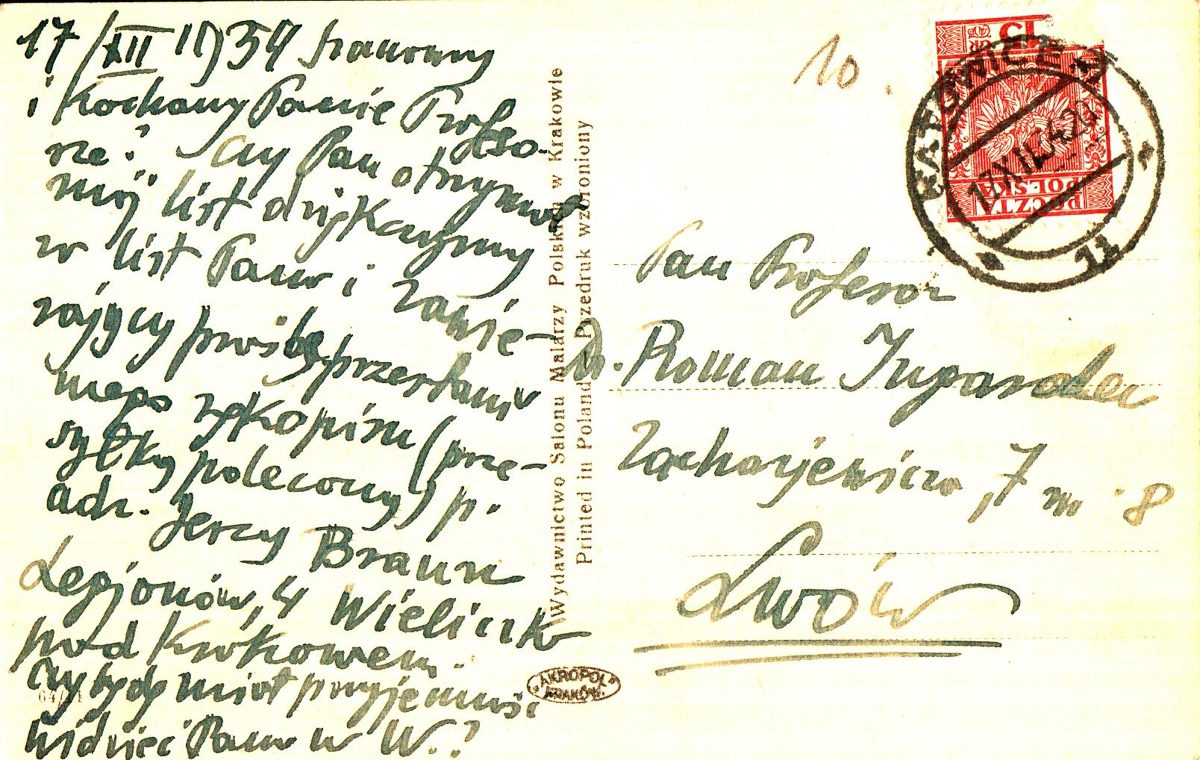 17/XII 1934 Szanowny
i Kochany Panie Profeso-
rze! Czy Pan otrzymał
mój list dziękczynny
w list Pana i zawie-
rający prośbę przesłania
mego rękopisu (prze-
syłką poleconą) p.
adr. Jerzy Braun
Legjonów, 4 Wieliczka
pod Krakowem.
Czy będę miał przyjemność
widzieć Pana w W.?
Wydawnictwo Salonu Malarzy Polskich w Krakowie
Printed in Poland Przedruk wzbroniony
AKROPOL
KRAKÓW.
10.
15
POCZTA
POLSKA
KATOWICE 2
17.XII.34
11
Pan Profesor
Dr. Roman Ingarden
Zacharjewicza, 7 m. 8
Lwów